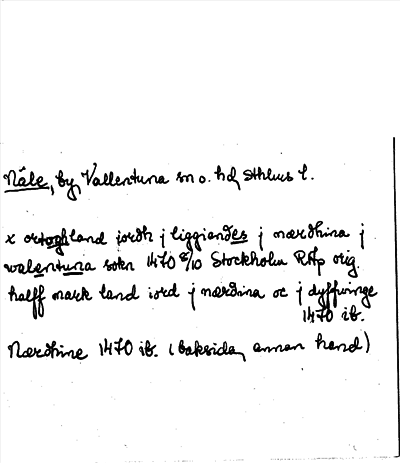 Nåle, by, Vallentuna sn o. hd, Sthlms l.
x ortoghland jordh j liggiandes j nærdhina j
walentuna sokn 1470 8/10 Stockholm RAp orig.
halff mark land iord j nærdina oc j dyffwinge
1470 ib.
Nærdhine 1470 ib. (baksida, annan hand)